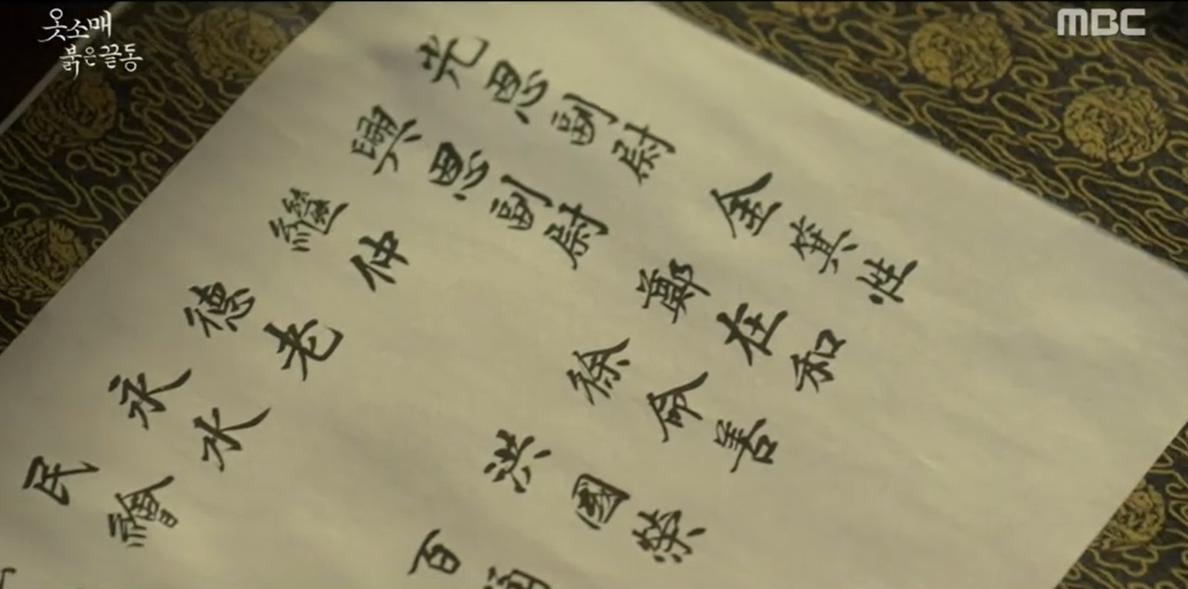 옷소매
붉은 끝동
MBC
光恩副尉 金箕性
興恩副尉 鄭在和
繼仲 徐命善
德老 洪國榮
永水 百
民繪